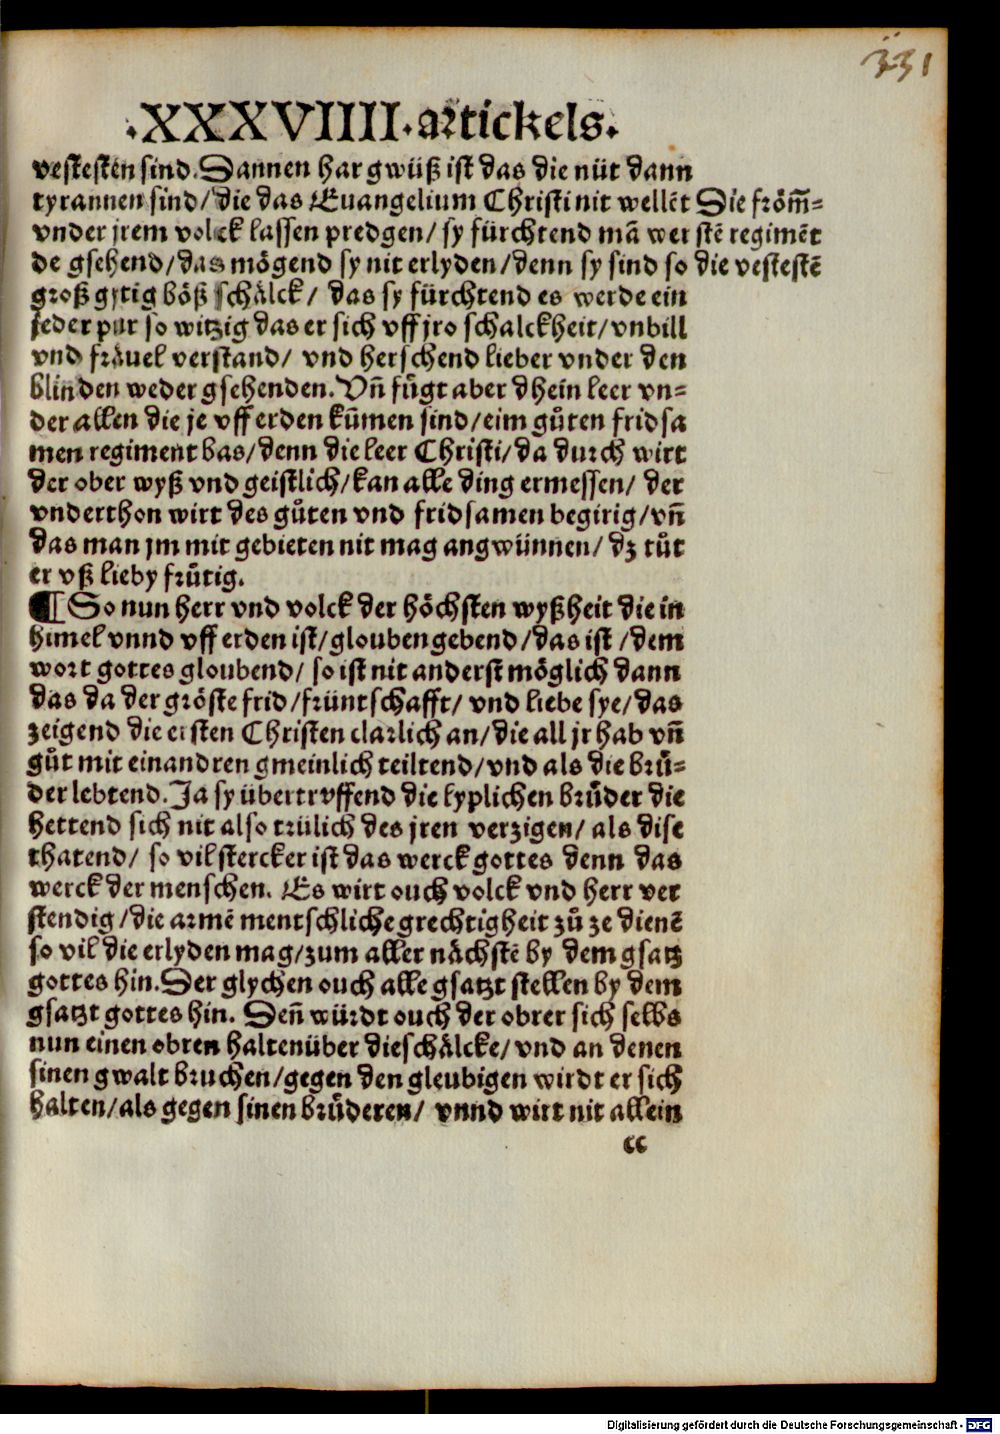 331
.XXXVIIII. artickels.
vestesten sind. Dannen har gwüß ist das die nüt dann
tyrannen sind/die das Euangelium Christi nit wellēt
vnder jrem volck lassen predgen/ sy fürchtend mā wer
de gsehend/das mögend sy nit erlyden/denn sy sind so
groß gytig böß schälck/ das sy fürchtend es werde ein
jeder pur so witzig das er sich vff jro schalckheit/vnbill
vnd fräuel verstand/ vnd herschend lieber vnder den
blinden weder gsehenden. Vn̄ fůgt aber dhein leer vn-
der allen die je vff erden kum̄en sind/eim gůten fridsa
men regiment bas/denn die leer Christi/da durch wirt
der ober wyß vnd geistlich/kan alle ding ermessen/ der
vnderthon wirt des gůten vnd fridsamen begirig/vn̄
das man jm mit gebieten nit mag angwünnen/ dz tůt
er vß lieby frůtig.
¶ So nun herr vnd volck der höchsten wyßheit die in
himel vnnd vff erden ist/glouben gebend/das ist/dem
wort gottes gloubend/ so ist nit anderst möglich dann
das da der gröste frid/früntschafft/ vnd liebe sye/das
zeigend die ersten Christen clarlich an/die all jr hab vn̄
gůt mit einandren gmeinlich teiltend/vnd als die brů-
der lebtend. Ja sy übertrvffend die lyplichen brůder die
hettend sich nit also trülich des jren verzigen/ als dise
thatend/ so vil stercker ist das werck gottes denn das
werck der menschen. Es wirt ouch volck vnd herr ver
stendig/die armē mentschliche grechtigheit zů ze dienē
so vil die erlyden mag/zum aller nächstē by dem gsatz
gottes hin. Der glychen ouch alle gsatzt stellen by dem
gsatzt gottes hin. Den̄ würdt ouch der obrer sich selbs
nun einen obren halten über die schälcke/ vnd an denen
sinen gwalt bruchen/gegen den gleubigen wirdt er sich
halten/als gegen sinen brůderen/ vnnd wirt nit allein
cc
Die fröm̄-
stē regimēt
die vestestē
Digitalisierung gefördert durch die Deutsche Forschungsgemeinschaft - DFG